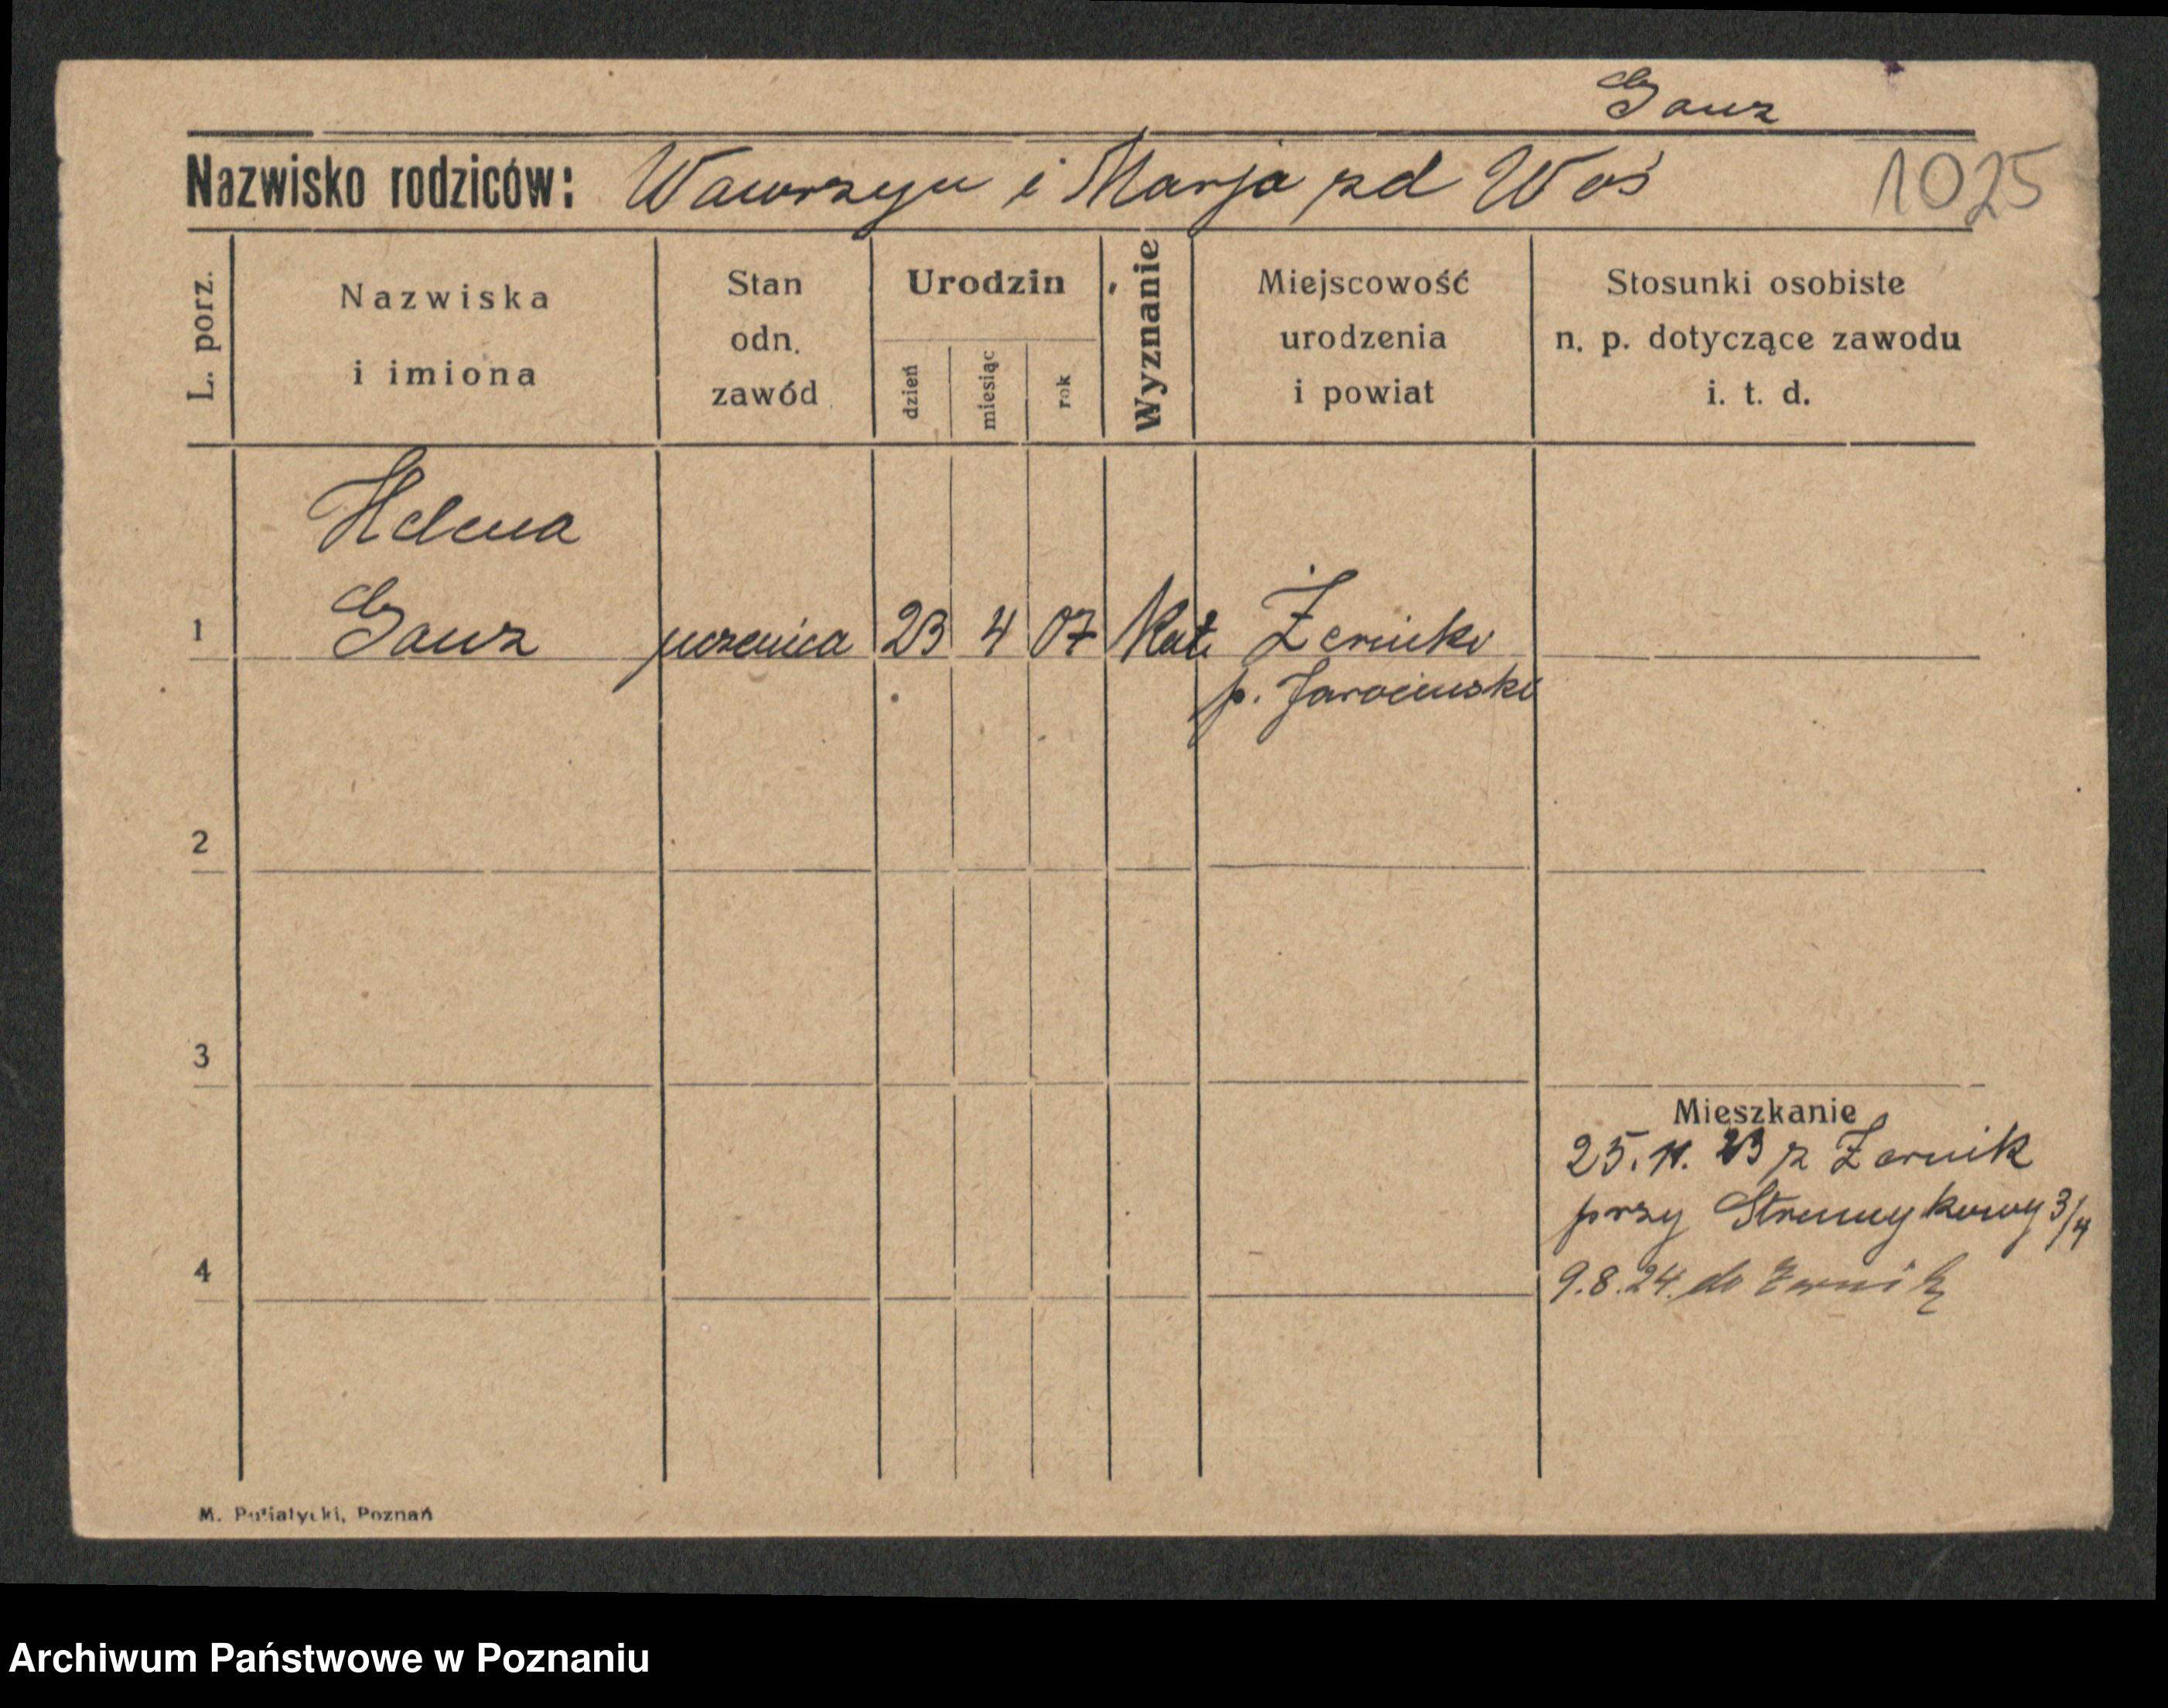 Ganz
Nazwisko rodziców: Wawrzyn i Marja zd Woś 1025
L. porz.
Nazwiska
i imiona
Stan
odn.
zawód
Urodzin
dzień
miesiąc
rok
Wyznanie
Miejscowość
urodzenia
i powiat
Stosunki osobiste
n. p. dotyczące zawodu
i. t. d.
Helena
1 Ganz uczenica 23 4 07 Kat. Żerniki
p. Jarocinski
2
3
Mieszkanie
25. 11. 23 z Żernik
przy Strumykowy 3/4
4 9.8.24. do Żernik
M. Putiatycki, Poznań
Archiwum Państwowe w Poznaniu